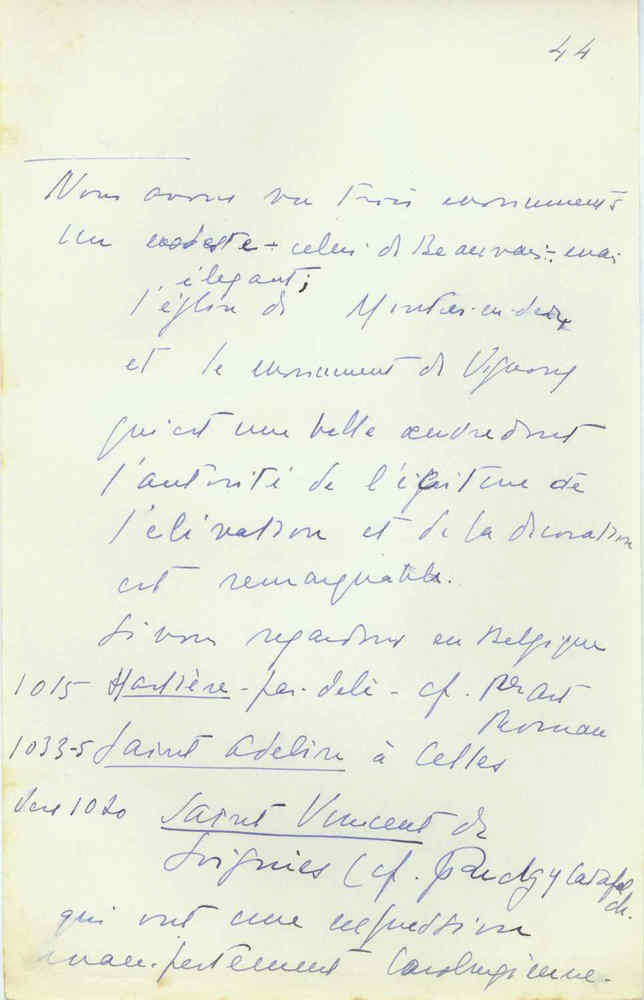 44
Nous avons vu trois monuments
Un modeste - celui de Beauvais - mais
élégant;
l'église de Montier-en-der
et le monument de Vignory
qui est une belle œuvre dont
l'autorité de l'écriture de
l'élévation et de la décoration
est remarquable.
Si nous regardons en Belgique
1015 Hastière-par-delà - cf. 1er art
Roman
1033-5 Saint Adelin à Celles
Vers 1020 Saint Vincent de
Soignies (cf.
qui ont une expression
manifestement Carolingienne.